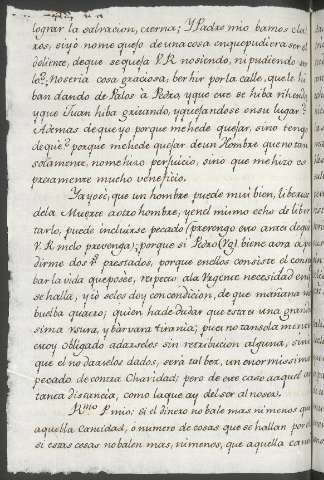 lograr la salvacion, eterna; Y Padre mio bamos cla
ros, si yo nome quejo de una cosa en que pudiera ser el
doliente, de que se queja V.R. no siendo, ni pudiendo ser
lo? No seria cosa graciosa; ber hir por la calle, que le hi
ban dando de Palos à Pedro, y que este se hiba rihendo
y que Juan hiba gritando, y quejandose en su lugar?
Ademas de que yo porque me hé de quejar, sino tengo
de qué? porque me hé de quejar de un Hombre que no tan
solamente, nome hizo perjuicio, sino que me hizo ex
presamente mucho veneficio.
Ya yo sé, que un hombre puede mui bien, libertar
dela Muerte a otro hombre, y en el mismo echo de liber
tarlo, puede incluirse pecado (prevengo esto antes de que
V.R. melo prevenga); porque si Pedro (Vg) biene aora a pe
dirme dos r.s prestados, porque en ellos consiste el conser
bar la vida que poseé, respecto ala Urgente necesidad en que
se halla, y io seles doy con condicion, de que mañana me
buelba quatro; quien hade dudar que esta es una grandi
sima Usura, y bàrvara tirania; pues no tan solamente
estoy obligado a darseles sin retribucion alguna; sino
que el no darselos dados, será tal bez, un enormissimo
pecado de contra Charidad; pero de este caso a aquel ai
tanta distancia, como la que ay del sol a nosotros.
R.mo P. mio: si el dinero no bale mas ni menos que
aquella Cantidad, ò numero de cosas que se hallan por el
si estas cosas no balen mas, ni menos, que aquella can